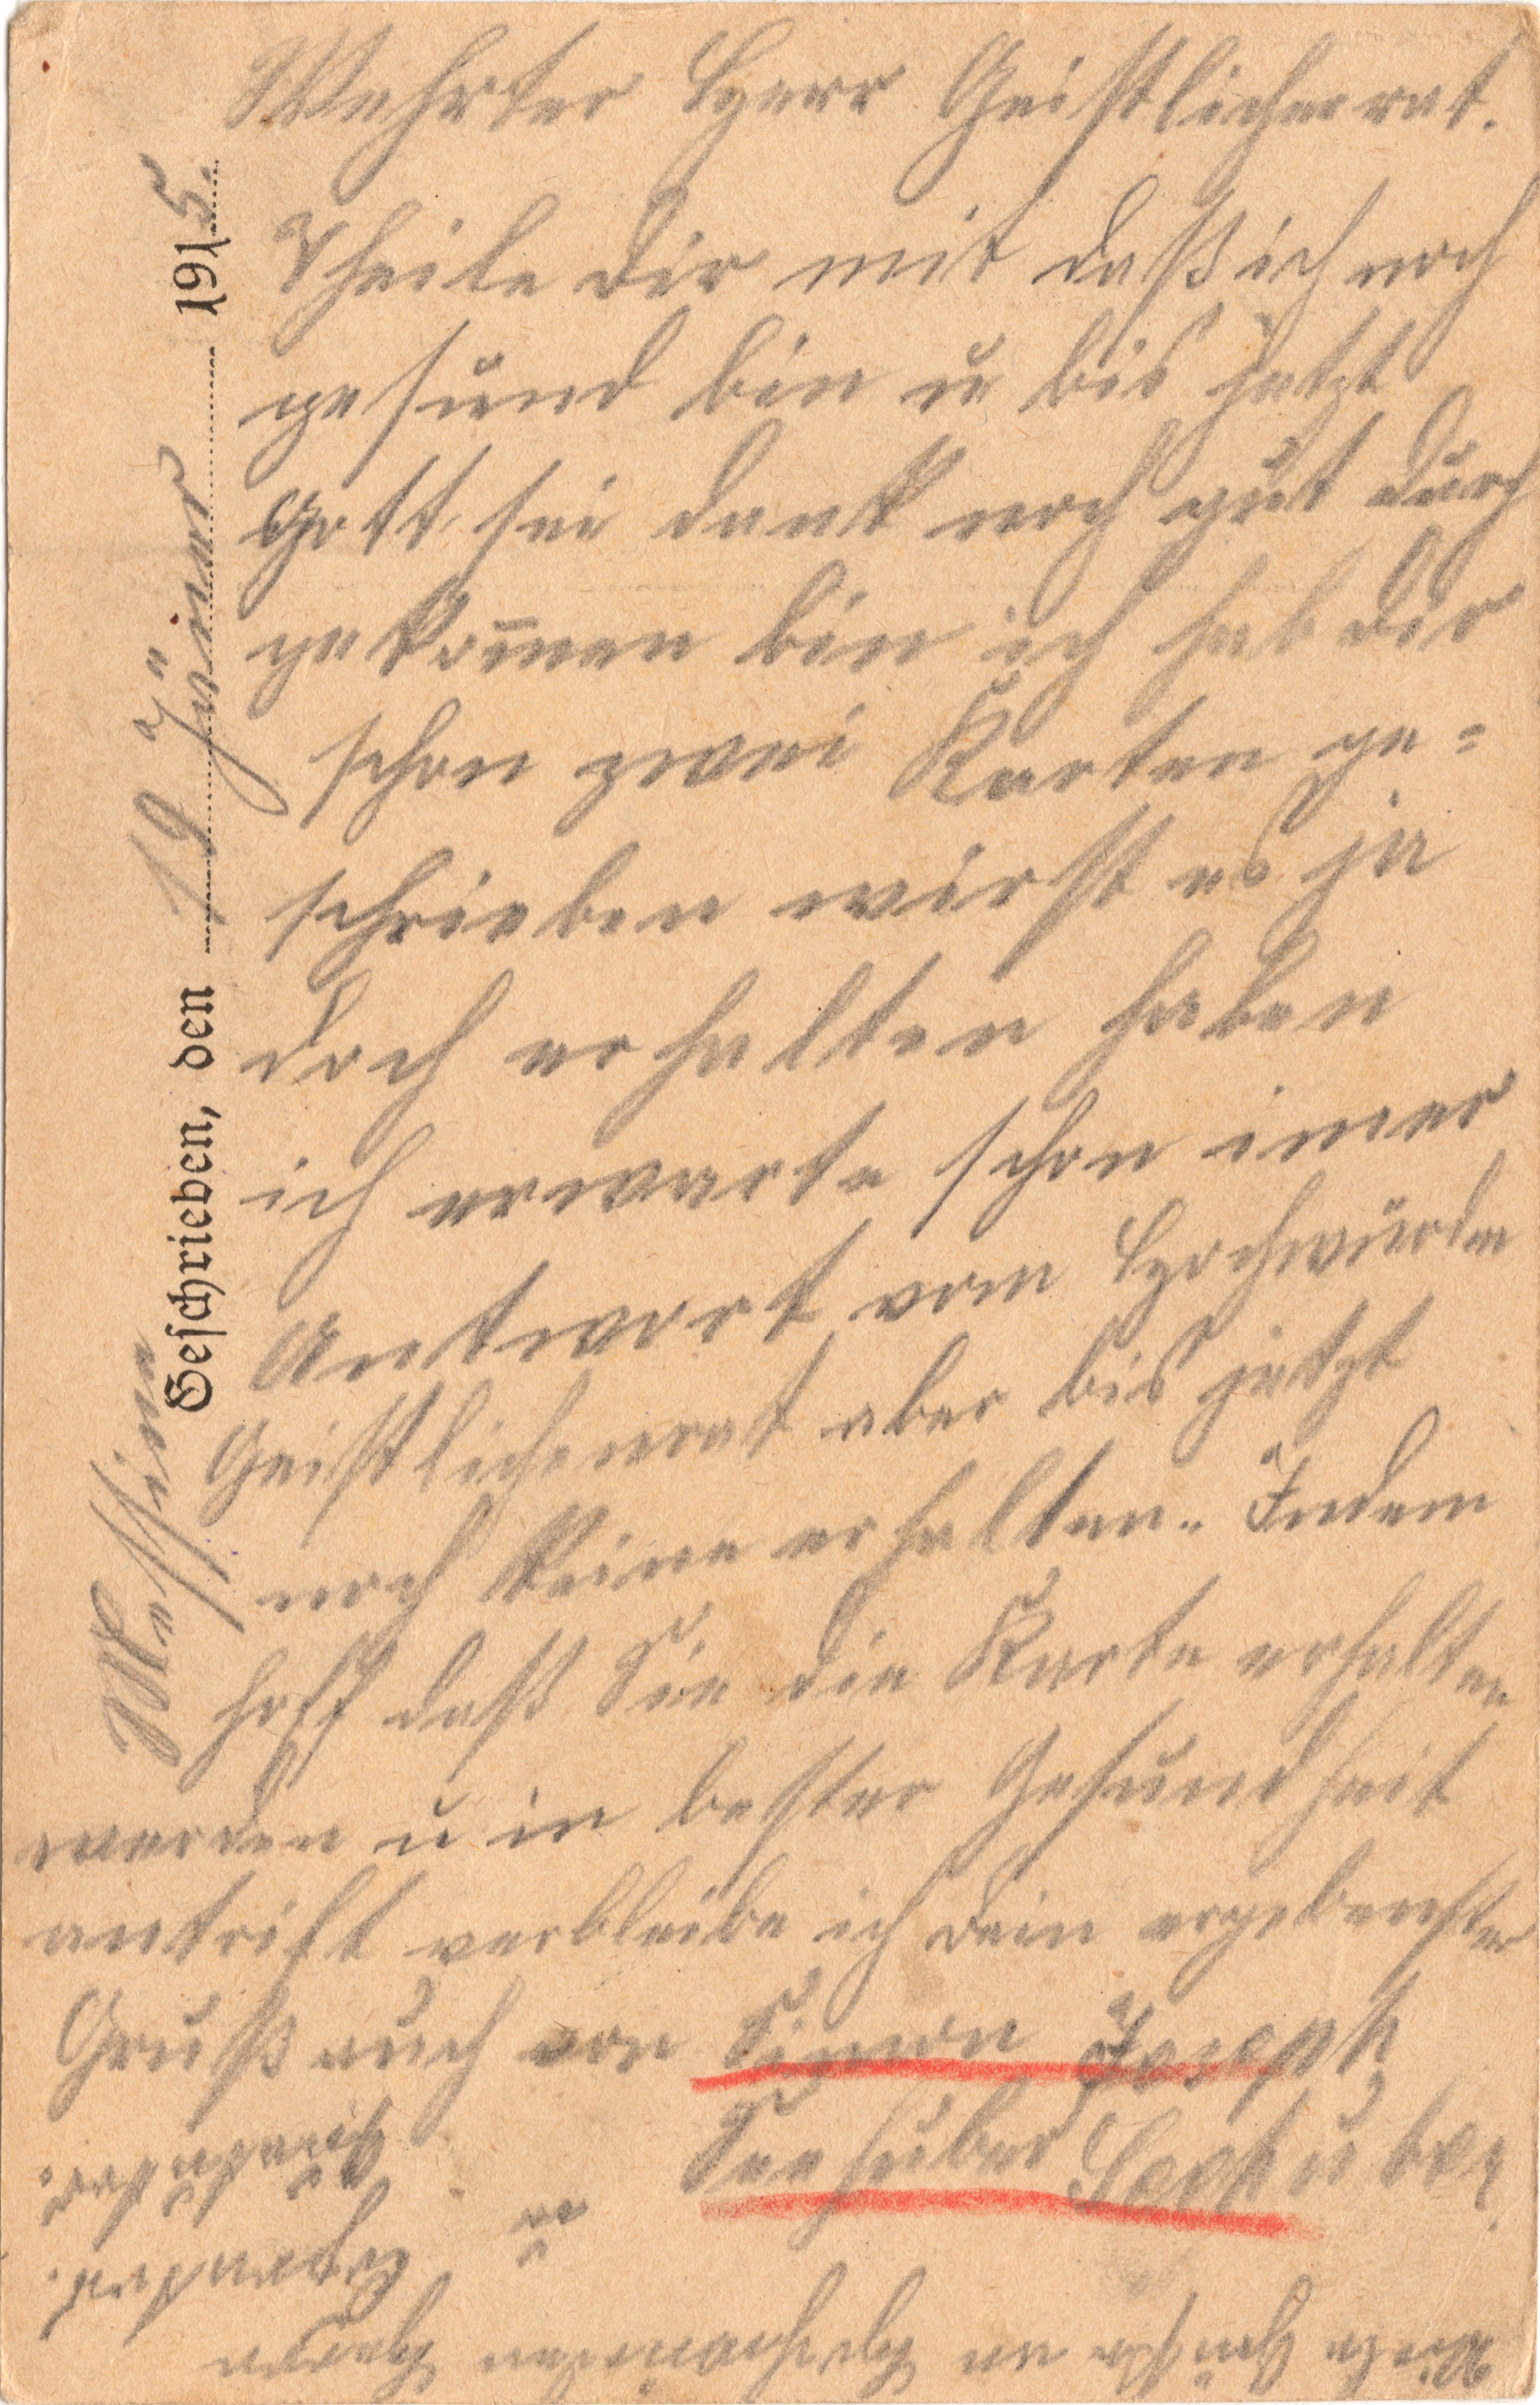 Messines
Geschrieben, den 19 Jäner 1915.
Wehrter Herr Geistlicherrat.
Theile dir mit daß ich noch
gesund bin u bis jetzt
Gott sei dank noch gut durch
gekom̅en bin ich hab dir
schon zwei Karten ge=
schrieben wirst es ja
doch erhalten haben
ich erwarte schon imer
Antwort vom Hochwürden
Geistlichenrat aber bis jetzt
noch keine erhalten. Indem
hoff daß Sie die Karte erhalten
werden u in bester Gesundheit
antrift verbleibe ich dein ergebenster
Gruß auch von Simon Joseph
Seehuber Seehuber
Viele Grüße an Hochwürden Herrn
u